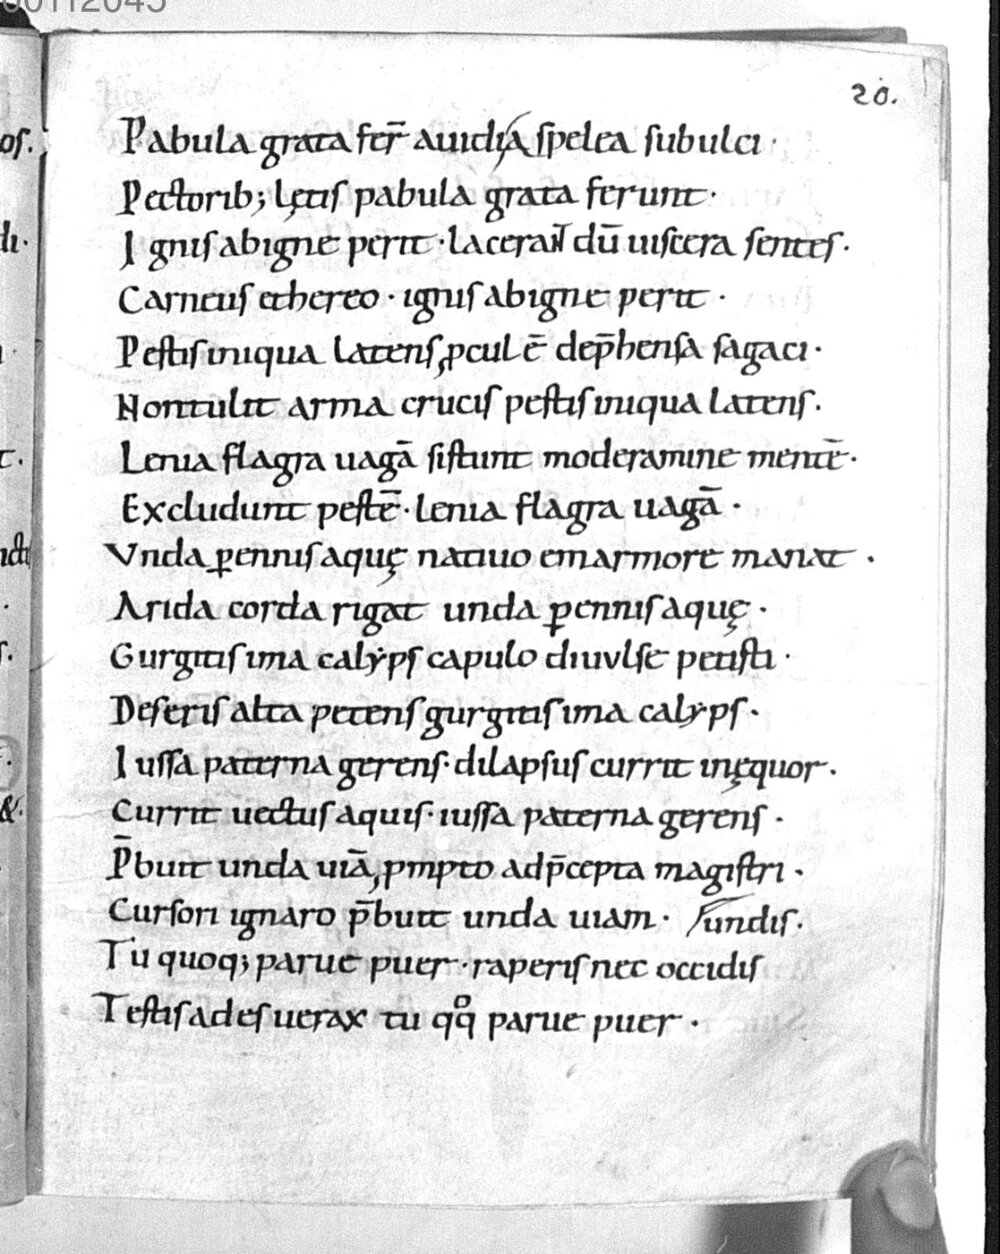 20.
Pabula grata fer̄ auidis a spelea subulci·
Pectorib; lętis pabula grata ferunt·
Ignis ab igne perit· lacerat dū uiscera sentes·
Carneus ethereo· ignis ab igne perit·
Pestis iniqua latens, ꝓcul ē dep̄hensa sagaci·
Non tulit arma crucis pestis iniqua latens.
Lenia flagra uagā sistunt moderamine mentē·
Excludunt pestē· lenia flagra uagā·
Vnda ꝑennis aquę natiuo e marmore manat·
Arida corda rigat unda ꝑennis aquę·
Gurgitis ima calẏps capulo diuulse petisti·
Deseris alta petens gurgitis ima calyps·
Iussa paterna gerens· dilapsus currit in ęquor·
Currit uectus aquis· iussa paterna gerens·
P̄buit unda uiā, ꝓmpto ad p̄cepta magistri·
Cursori ignaro p̄buit unda uiam· /undis.
Tu quoq; parue puer· raperis nec occidis
Testis ades uerax tu qq̊ parue puer·